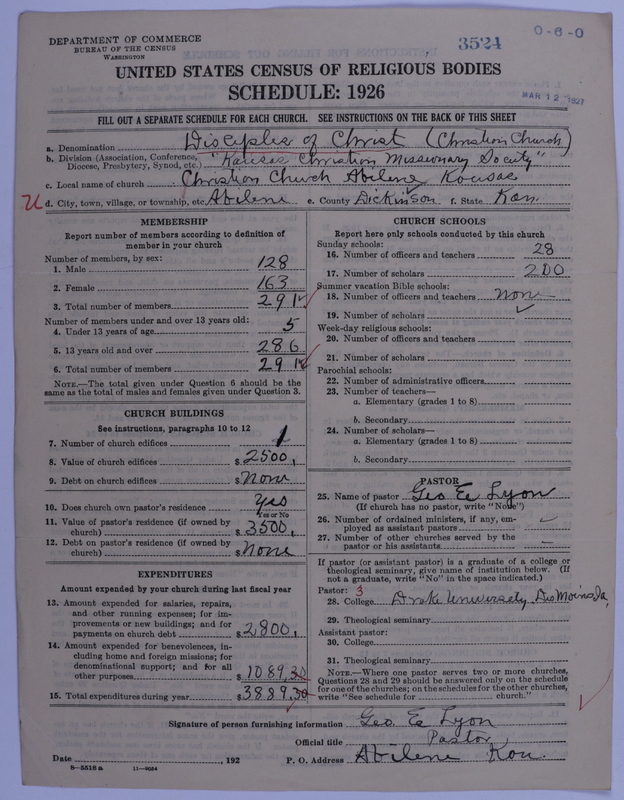 DEPARTMENT OF COMMERCE
BUREAU OF THE CENSUS
WASHINGTON
3524
0-6-0
MAR 12 1927
UNITED STATES CENSUS OF RELIGIOUS BODIES
SCHEDULE: 1926
FILL OUT A SEPARATE SCHEDULE FOR EACH CHURCH. SEE INSTRUCTIONS ON THE BACK OF THIS SHEET
a. Denomination Disciples of Christ (Christian Church)
b. Division (Association, Conference, Diocese, Presbytery, Synod, etc.) "Kansas Christian Missionary Society"
c. Local name of church Christian Church Abilene Kansas
U d. City, town, village, or township, etc. Abilene e. County Dickinson f. State Kan.
MEMBERSHIP
Report number of members according to definition of
member in your church
Number of members, by sex:
1. Male 128
2. Female 163
3. Total number of members 291
Number of members under and over 13 years old:
4. Under 13 years of age 5
5. 13 years old and over 286
6. Total number of members 291
NOTE.—The total given under Question 6 should be the
same as the total of males and females given under Question 3.
CHURCH BUILDINGS
See instructions, paragraphs 10 to 12
7. Number of church edifices 1
8. Value of church edifices $ 2500,
9. Debt on church edifices $ None
10. Does church own pastor's residence Yes
Yes or No
11. Value of pastor's residence (if owned by
church) $ 3500,
12. Debt on pastor's residence (if owned by
church) $ None
EXPENDITURES
Amount expended by your church during last fiscal year
13. Amount expended for salaries, repairs,
and other running expenses; for im-
provements or new buildings; and for
payments on church debt $ 2800,
14. Amount expended for benevolences, in-
cluding home and foreign missions; for
denominational support; and for all
other purposes $ 1089,30
15. Total expenditures during year $ 3889,30
CHURCH SCHOOLS
Report here only schools conducted by this church
Sunday schools:
16. Number of officers and teachers 28
17. Number of scholars 200
Summer vacation Bible schools:
18. Number of officers and teachers None
19. Number of scholars
Week-day religious schools:
20. Number of officers and teachers
21. Number of scholars
Parochial schools:
22. Number of administrative officers
23. Number of teachers—
a. Elementary (grades 1 to 8)
b. Secondary
24. Number of scholars—
a. Elementary (grades 1 to 8)
b. Secondary
PASTOR
25. Name of pastor Geo E Lyon
(If church has no pastor, write "None")
26. Number of ordained ministers, if any, em-
ployed as assistant pastors
27. Number of other churches served by the
pastor or his assistants
If pastor (or assistant pastor) is a graduate of a college or
theological seminary, give name of institution below. (If
not a graduate, write "No" in the space indicated.)
Pastor: 3
28. College Drake University Des Moines Ia,
29. Theological seminary
Assistant pastor:
30. College
31. Theological seminary
NOTE.—Where one pastor serves two or more churches,
Questions 28 and 29 should be answered only on the schedule
for one of the churches; on the schedules for the other churches,
write "See schedule for church."
Signature of person furnishing information Geo E Lyon
Official title Pastor
Date , 192 P. O. Address Abilene Kan.
8—5518 a 11—9064